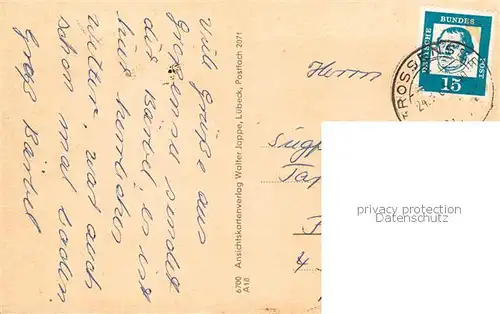 Viele Grüße aus
Grossensee sendet
die Bärbel, es ist
hier herrliches
Wetter, war auch
schon mal baden.
Gruß Bärbel
6700 Ansichtskartenverlag Walter Jappe, Lübeck, Postfach 2071
A18
Herrn
4
DEUTSCHE
BUNDES
POST
15
GROSSENSEE
24.
privacy protection
Datenschutz